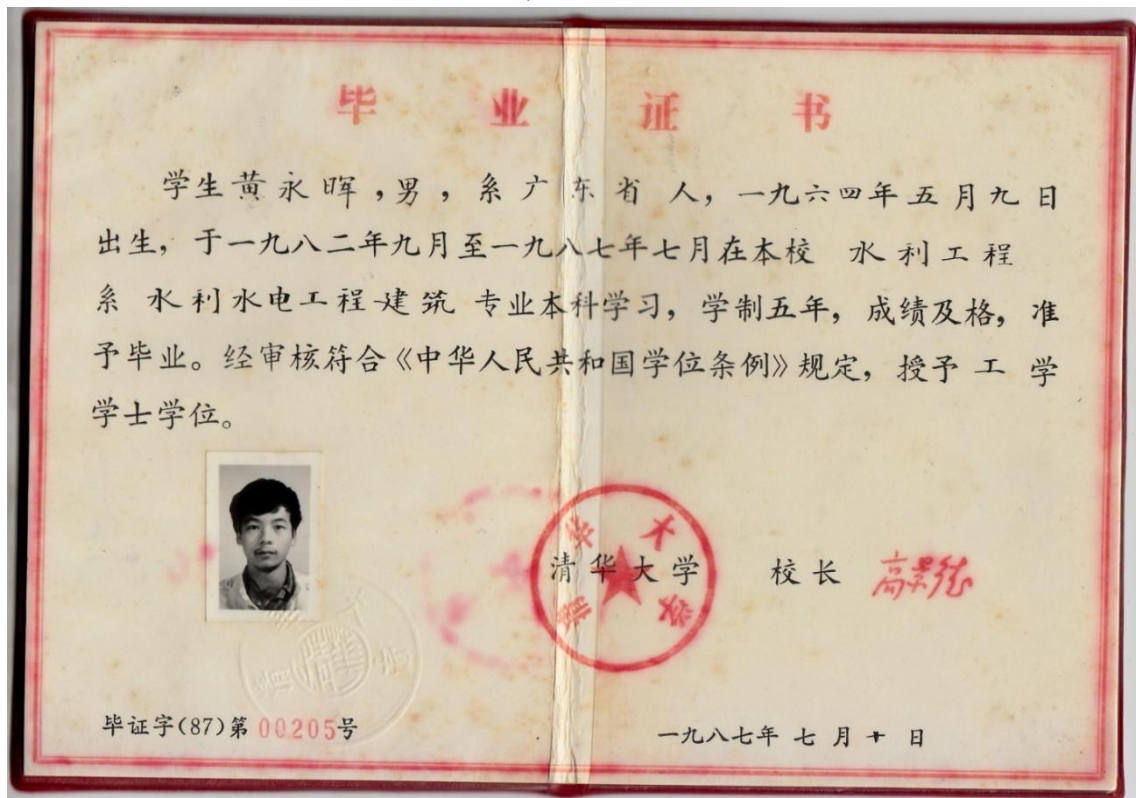 毕业证书
学生黄永晖，男，系广东省人，一九六四年五月九日
出生，于一九八二年九月至一九八七年七月在本校 水利工程
系 水利水电工程建筑 专业本科学习，学制五年，成绩及格，准
予毕业。经审核符合《中华人民共和国学位条例》规定，授予 工 学
学士学位。
清华大学
清华大学 校长 高景德
毕证字(87)第00205号
一九八七年 七 月 十 日